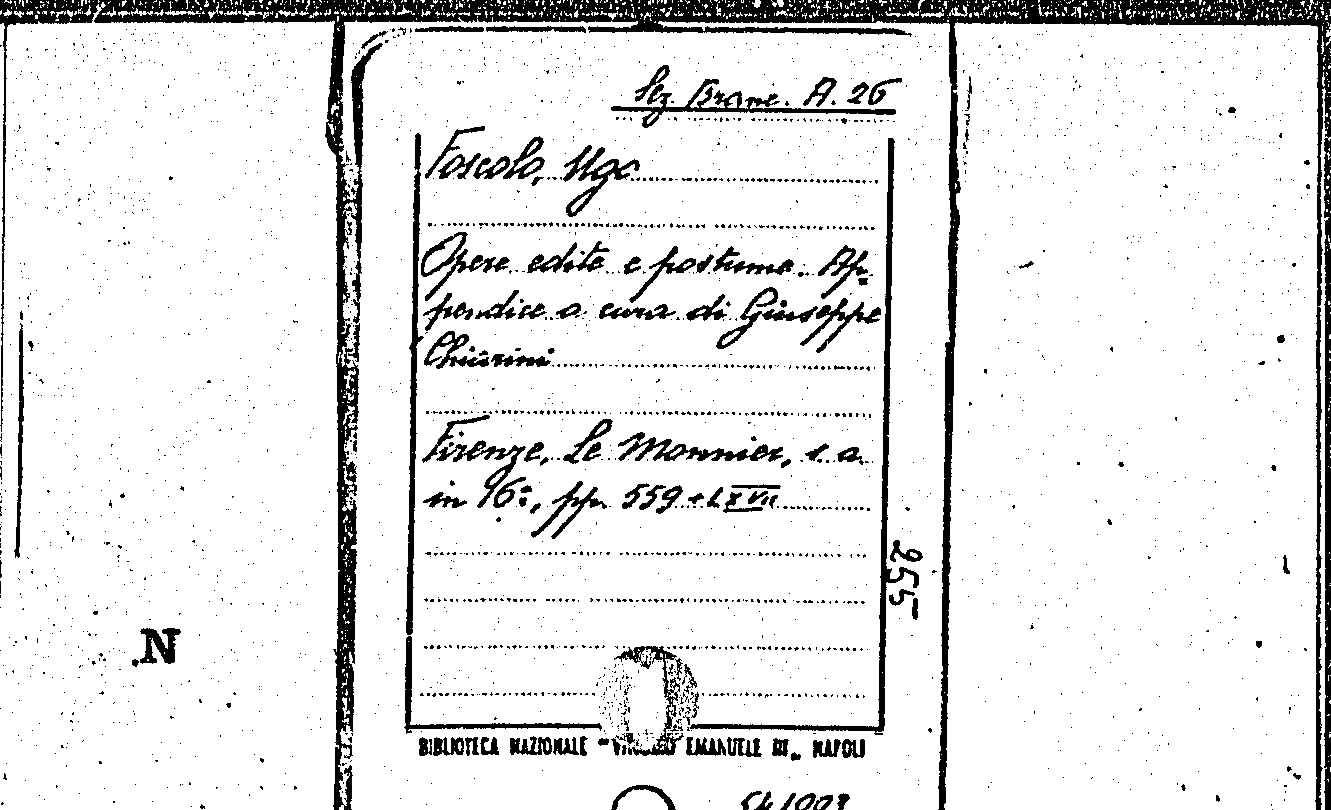 Sez. Branc. A. 26
Foscolo, Ugo
Opere edite e postume. Ap=
pendice a cura di Giuseppe
Chiarini
Firenze, Le Monnier, s. a.
in 16°:, pp. 559 + LXVII
255
N
BIBLIOTECA NAZIONALE "VITTORIO EMANUELE III„ NAPOLI